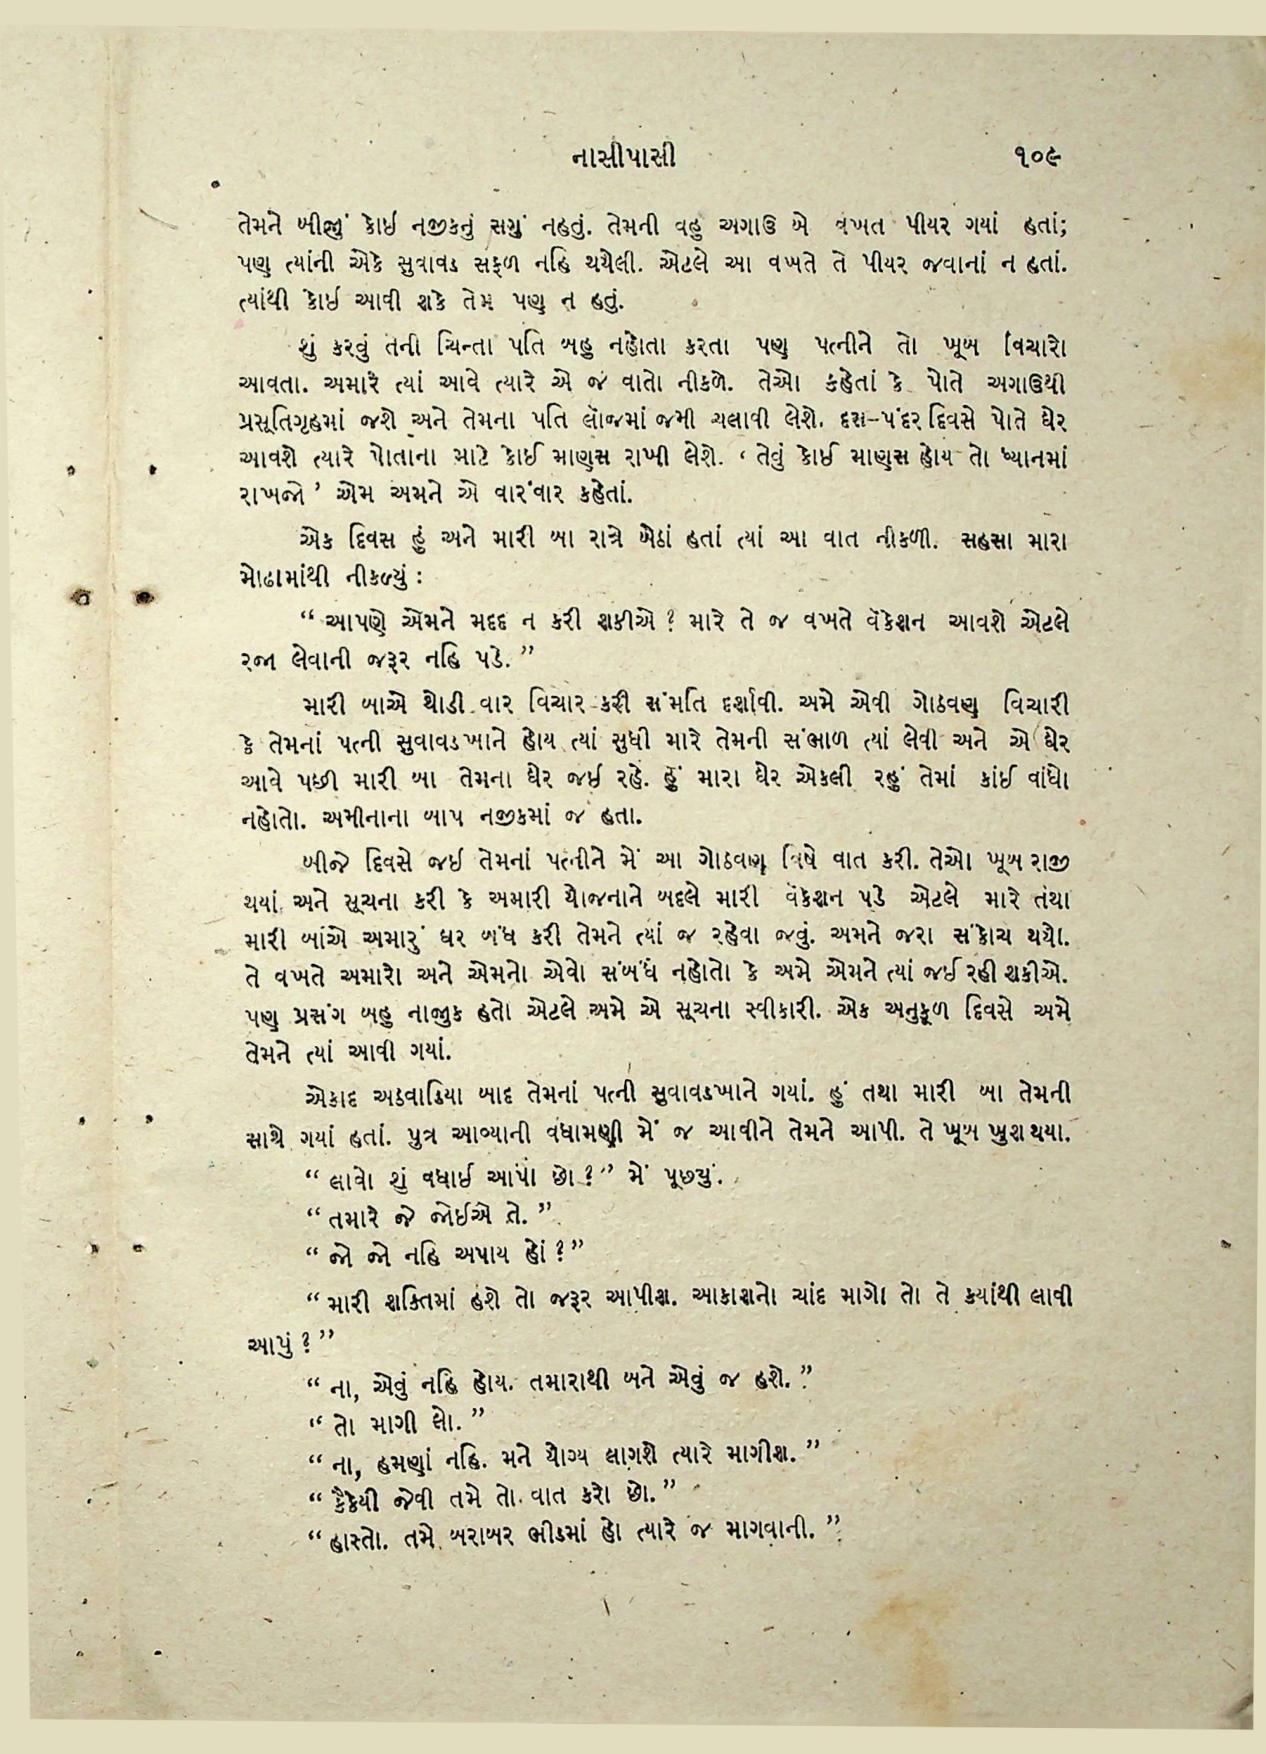 નાસીપાસી ૧૦૯
તેમને બીજું કોઈ નજીકનું સગું નહતું. તેમની વહુ અગાઉ બે વખત પીયર ગયાં હતાં;
પણ ત્યાંની એકે સુવાવડ સફળ નહિ થયેલી. એટલે આ વખતે તે પીયર જવાનાં ન હતાં.
ત્યાંથી કોઈ આવી શકે તેમ પણ ન હતું.
શું કરવું તેની ચિન્તા પતિ બહુ નહોતા કરતા પણ પત્નીને તો ખૂબ વિચારો
આવતા. અમારે ત્યાં આવે ત્યારે એ જ વાતો નીકળે. તેઓ કહેતાં કે પોતે અગાઉથી
પ્રસૂતિગૃહમાં જશે અને તેમના પતિ લૉજમાં જમી ચલાવી લેશે. દસ-પંદર દિવસે પોતે ઘેર
આવશે ત્યારે પોતાના માટે કોઈ માણસ રાખી લેશે. ‘ તેવું કોઈ માણસ હોય તો ધ્યાનમાં
રાખજો ’ એમ અમને એ વારંવાર કહેતાં.
એક દિવસ હું અને મારી બા રાત્રે બેઠાં હતાં ત્યાં આ વાત નીકળી. સહસા મારા
મોઢામાંથી નીકળ્યું :
“ આપણે એમને મદદ ન કરી શકીએ ? મારે તે જ વખતે વૅકેશન આવશે એટલે
રજા લેવાની જરૂર નહિ પડે. ”
મારી બાએ થોડી વાર વિચાર કરી સંમતિ દર્શાવી. અમે એવી ગોઠવણ વિચારી
કે તેમનાં પત્ની સુવાવડખાને હોય ત્યાં સુધી મારે તેમની સંભાળ ત્યાં લેવી અને એ ઘેર
આવે પછી મારી બા તેમના ઘેર જઈ રહે. હું મારા ઘેર એકલી રહું તેમાં કાંઈ વાંધો
નહોતો. અમીનાના બાપ નજીકમાં જ હતા.
બીજે દિવસે જઈ તેમનાં પત્નીને મેં આ ગોઠવણ વિષે વાત કરી. તેઓ ખૂબ રાજી
થયાં અને સૂચના કરી કે અમારી યોજનાને બદલે મારી વૅકેશન પડે એટલે મારે તથા
મારી બાએ અમારું ઘર બંધ કરી તેમને ત્યાં જ રહેવા જવું. અમને જરા સંકોચ થયો.
તે વખતે અમારો અને એમનો એવો સંબંધ નહોતો કે અમે એમને ત્યાં જઈ રહી શકીએ.
પણ પ્રસંગ બહુ નાજુક હતો એટલે અમે એ સૂચના સ્વીકારી. એક અનુકૂળ દિવસે અમે
તેમને ત્યાં આવી ગયાં.
એકાદ અઠવાડિયા બાદ તેમનાં પત્ની સુવાવડખાને ગયાં. હું તથા મારી બા તેમની
સાથે ગયાં હતાં. પુત્ર આવ્યાની વધામણી મેં જ આવીને તેમને આપી. તે ખૂબ ખુશ થયા.
“ લાવો શું વધાઈ આપો છો ? ” મેં પૂછ્યું.
“ તમારે જે જોઈએ તે. ”
“ જો જો નહિ અપાય હોં ? ”
“ મારી શક્તિમાં હશે તો જરૂર આપીશ. આકાશનો ચાંદ માગો તો તે ક્યાંથી લાવી
આપું ? ”
“ ના, એવું નહિ હોય. તમારાથી બને એવું જ હશે. ”
“ તો માગી લો. ”
“ ના, હમણાં નહિ. મને યોગ્ય લાગશે ત્યારે માગીશ. ”
“ કૈકેયી જેવી તમે તો વાત કરો છો. ”
“ હાસ્તો. તમે બરાબર ભીડમાં હો ત્યારે જ માગવાની. ”